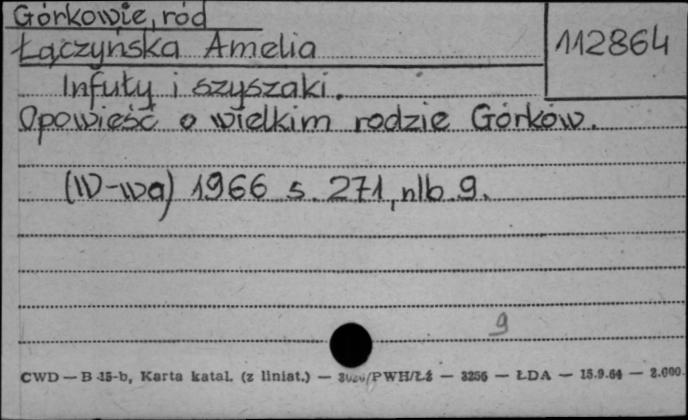 Górkowie, ród
Łączyńska Amelia 112864
Infuły i szyszaki.
Opowieść o wielkim rodzie Górków.
(W-wa) 1966 s. 271, nlb. 9.
9
CWD — B 15-b, Karta katal. (z liniat.) — PWH/Łź — 3256 — ŁDA — 15.9.64 — 2.000.